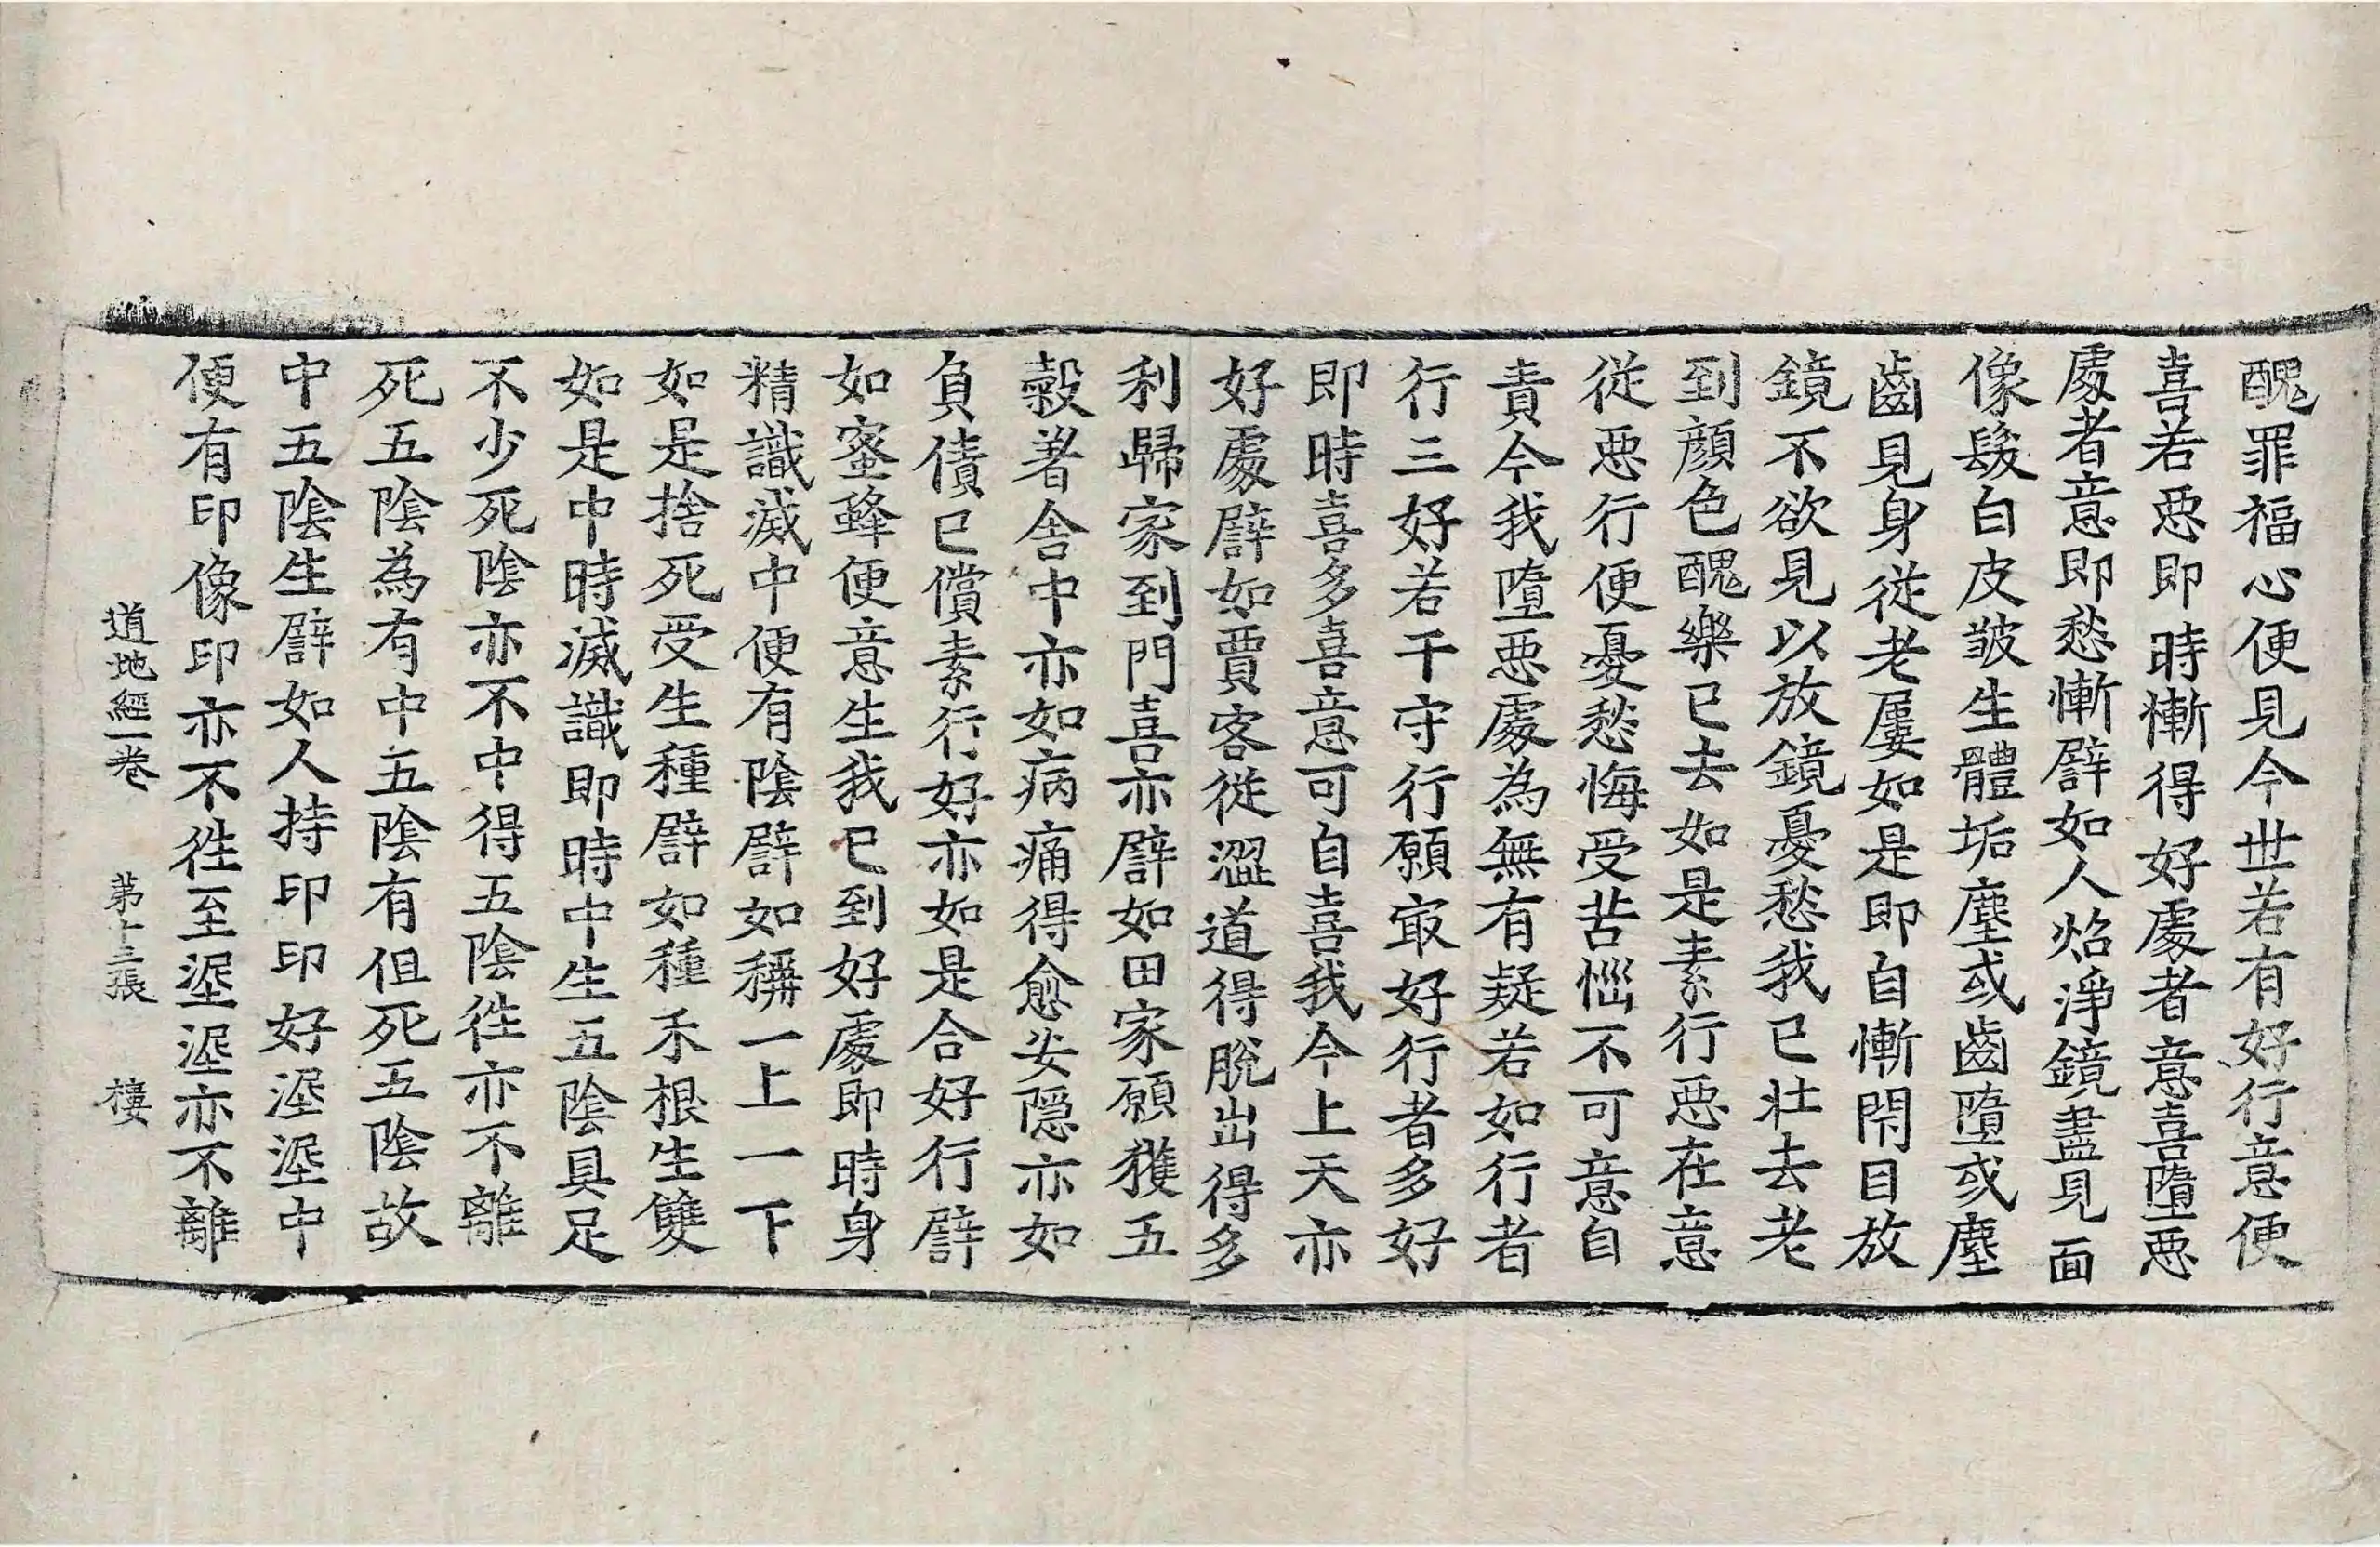 醜罪福心便見今世若有好行意便
喜若悪即時慚得好處者意喜墮悪
處者意即愁慚譬如人焰淨鏡盡見面
像髮白皮皺生體垢塵或齒墮或塵
齒見身從老屢如是即自慚閇目放
鏡不欲見以放鏡憂愁我已壯去老
到顔色醜樂已去如是素行悪在意
從悪行便憂愁悔受苦惱不可意自
責今我墮悪處為無有疑若如行者
行三好若干守行願㝡好行者多好
即時喜多喜意可自喜我今上天亦
好處譬如賈客從澀道得脫出得多
利歸家到門喜亦譬如田家願獲五
穀著舍中亦如病痛得愈安隱亦如
負債已償素行好亦如是合好行譬
如蜜蜂便意生我已到好處即時身
精識滅中便有陰譬如稱一上一下
如是捨死受生種譬如種禾根生雙
如是中時滅識即時中生五陰具足
不少死陰亦不中得五陰徃亦不離
死五陰為有中五陰有但死五陰故
中五陰生譬如人持印印好渥渥中
便有印像印亦不徃至渥渥亦不離
道地經一卷 第十三張 樓